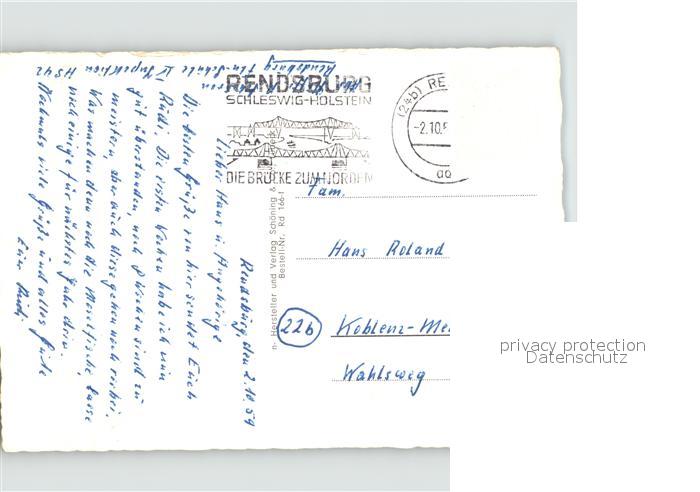 RENDSBURG
SCHLESWIG-HOLSTEIN
DIE BRÜCKE ZUM NORDEN
(24b) RE
-2.10.5
Rendsburg, den 2.10.59
Lieber Hans u. Angehörige
Die besten Grüße von hier sendet Euch
Rudi. Die ersten Wochen habe ich nun
gut überstanden, noch Wochen sind zu
meistern, aber auch diese gehen noch vorbei.
Was machen denn noch die Moselfische, lasse
noch einige für nächstes Jahr drin.
Nochmals viele Grüße und alles Gute
Euer Rudi.
Rendsburg
Inspektion HS42
Hersteller und Verlag Schöning &
Bestell-Nr. Rd 166-1
Fam.
Hans Roland
22b
Koblenz-Me
Wahlsweg
privacy protection
Datenschutz